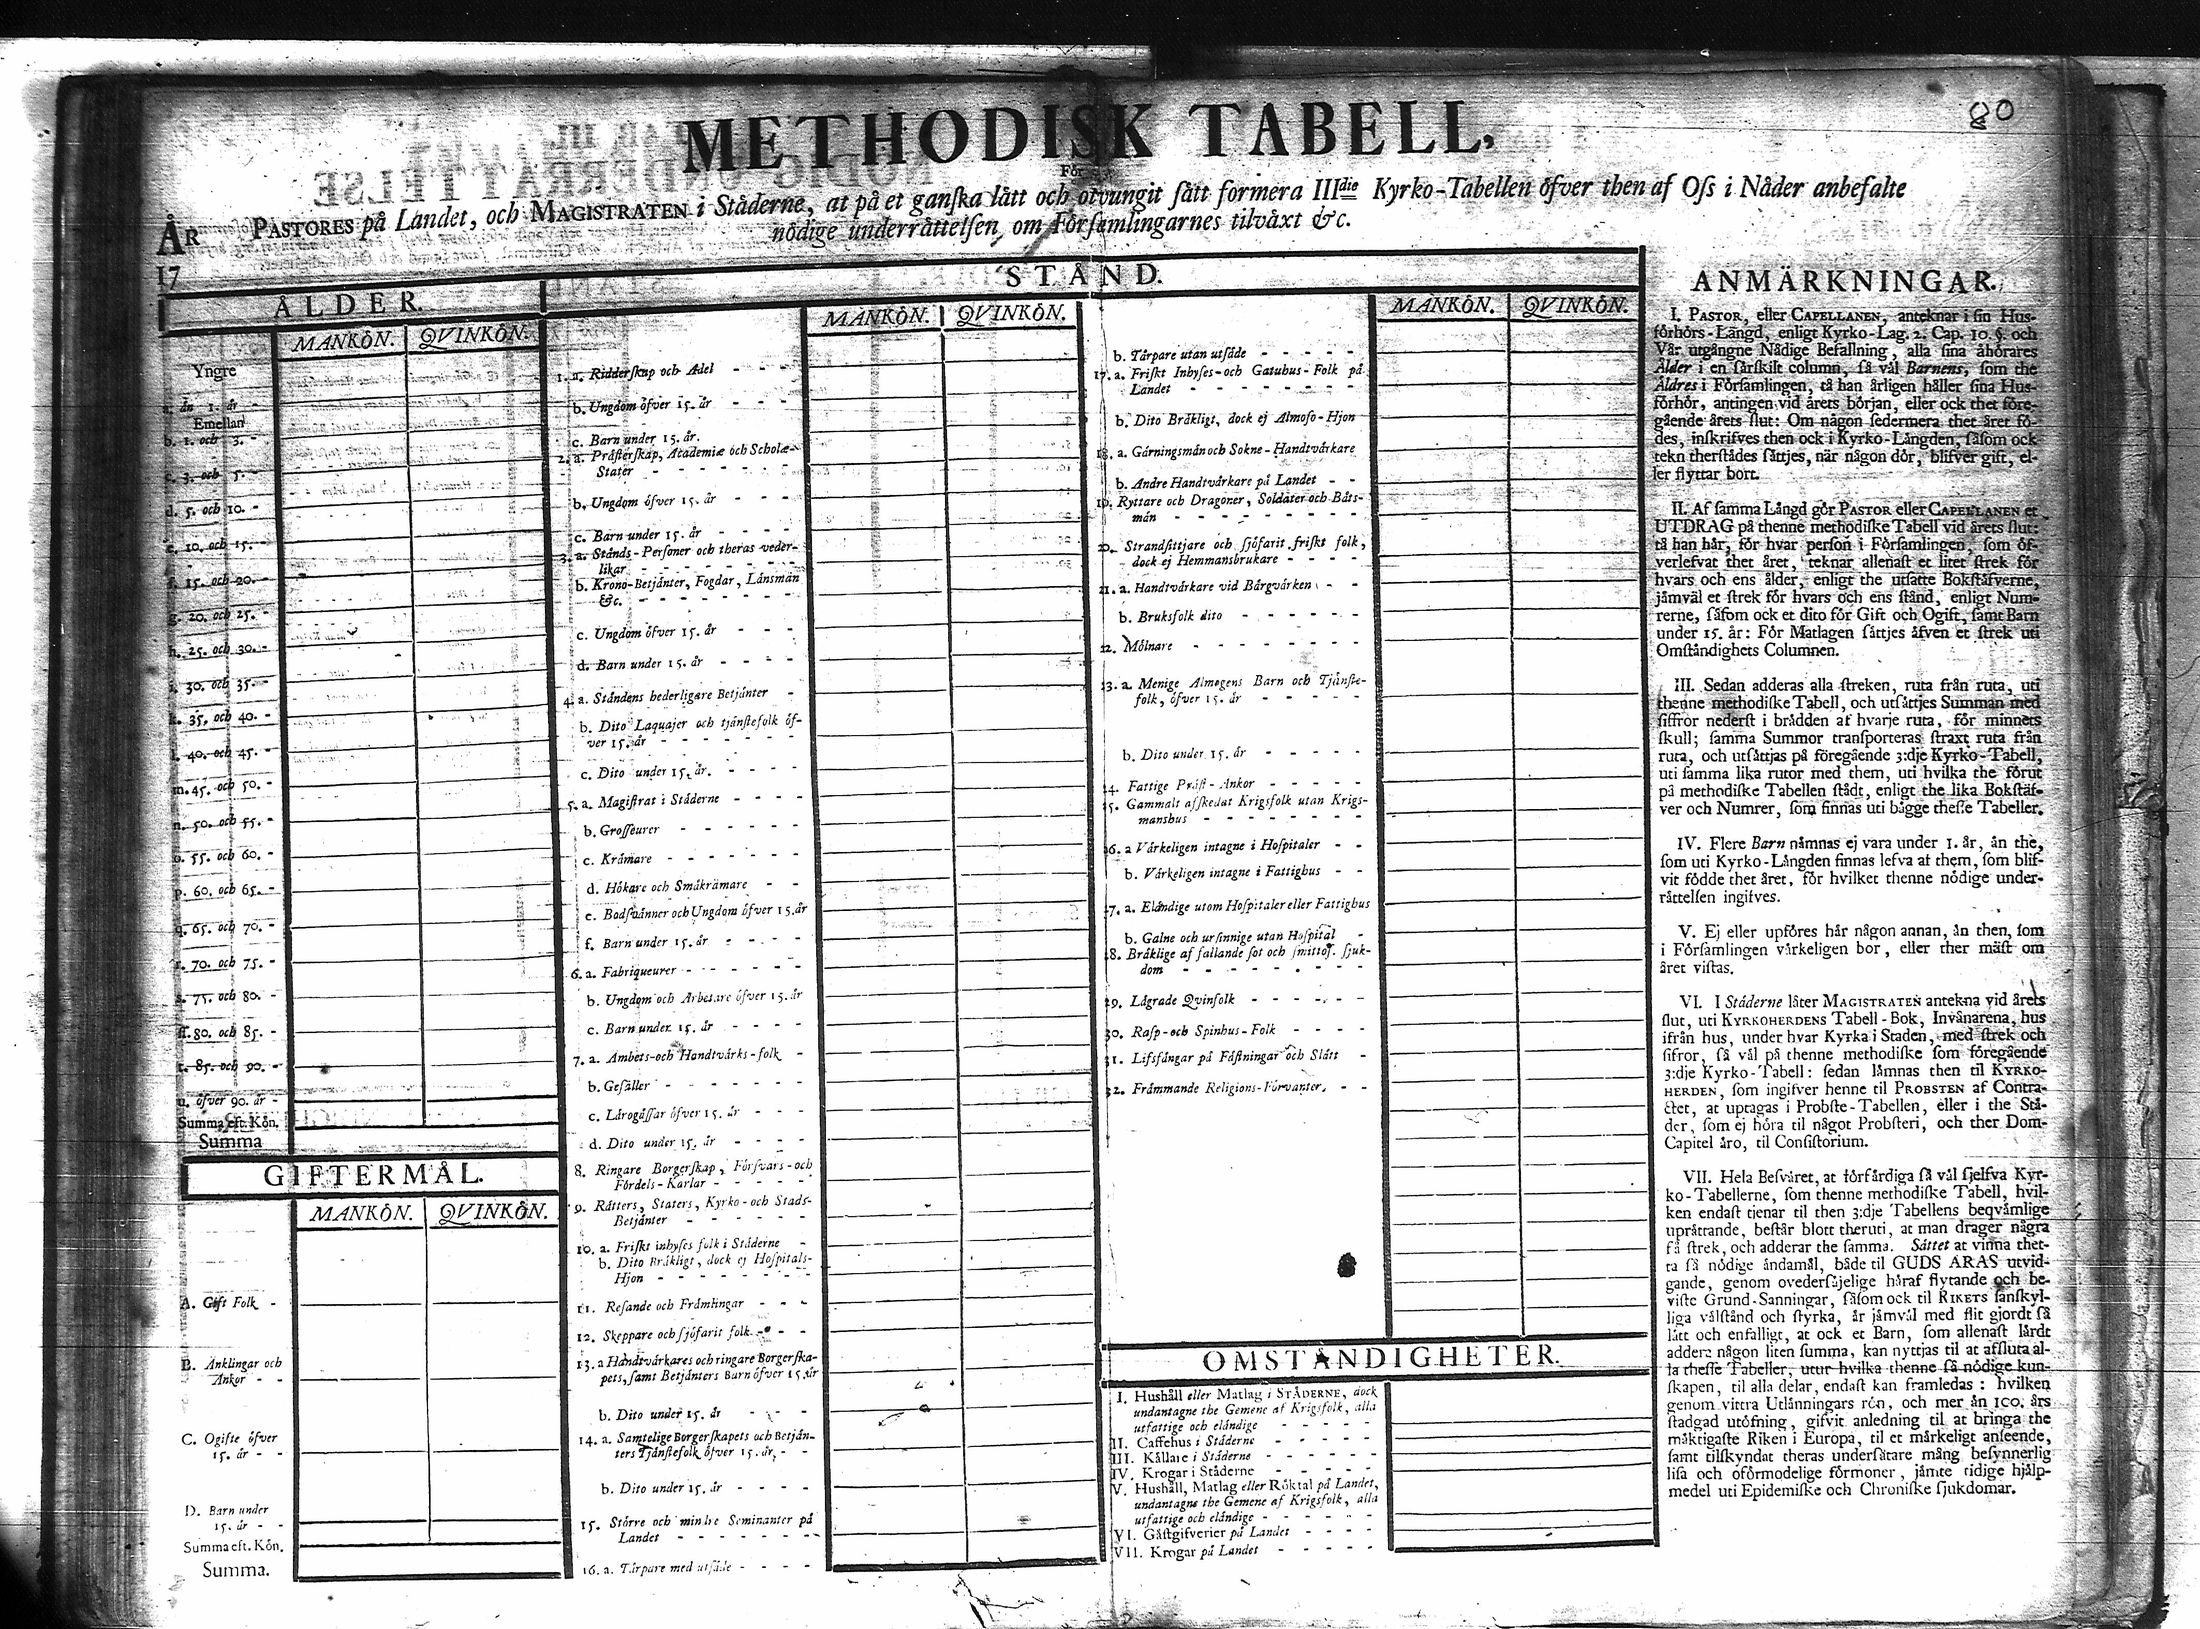 80
METHODISK TABELL,
För
PASTORES på Landet, och MAGISTRATEN i Städerne, at på et ganſka lätt och otvungit ſätt formera IIIdie Kyrko-Tabellen öfver then af Oſs i Nåder anbefalte
nödige underrättelſen om Förſamlingarnes tilväxt &c.
ÅR
17
ÅLDER.
MANKÖN. QVINKÖN.
Yngre
a. än 1. år -
Emellan
b. 1. och 3. -
c. 3. och 5. -
d. 5. och 10. -
e. 10. och 15. -
f. 15. och 20. -
g. 20. och 25. -
h. 25. och 30. -
i. 30. och 35. -
k. 35. och 40. -
l. 40. och 45. -
m. 45. och 50. -
n. 50. och 55. -
o. 55. och 60. -
p. 60. och 65. -
q. 65. och 70. -
r. 70. och 75. -
s. 75. och 80. -
ſſ. 80. och 85. -
t. 85. och 90. -
u. öfver 90. år -
Summa eft. Kön.
Summa
GIFTERMÅL.
MANKÖN. QVINKÖN.
A. Gift Folk -
B. Änklingar och
Änkor - -
C. Ogifte öfver
15. år - -
D. Barn under
15. år - -
Summa eft. Kön.
Summa.
STÅND.
MANKÖN. QVINKÖN.
1. a. Ridderſkap och Adel - - -
b. Ungdom öfver 15. år - - -
c. Barn under 15. år.
2. a. Präſterſkap, Academiæ och Scholæ-
Stater - - - - - -
b. Ungdom öfver 15. år - - -
c. Barn under 15. år - - - -
3. a. Stånds-Perſoner och theras veder-
likar - - - - - - -
b. Krono-Betjänter, Fogdar, Länsmän
&c. - - - - - - -
c. Ungdom öfver 15. år - - - -
d. Barn under 15. år - - - -
4. a. Ståndens hederligare Betjänter -
b. Dito Laquajer och tjänſtefolk öf-
ver 15. år - - - - - -
c. Dito under 15. år. - - - -
5. a. Magiſtrat i Städerne - - - -
b. Groſſeurer - - - - - -
c. Krämare - - - - - -
d. Hökare och Småkrämare - -
e. Bodſvänner och Ungdom öfver 15. år
f. Barn under 15. år - - - -
6. a. Fabriqueurer - - - - - -
b. Ungdom och Arbetare öfver 15. år
c. Barn under 15. år - - - -
7. a. Ämbets- och Handtvärks-folk -
b. Geſäller - - - - - - -
c. Lärogåſſar öfver 15. år - - -
d. Dito under 15. år - - - -
8. Ringare Borgerſkap, Förſvars- och
Fördels-Karlar - - - - -
9. Rätters, Staters, Kyrko- och Stads-
Betjänter - - - - - -
10. a. Friſkt inhyſes folk i Städerne -
b. Dito Bräkligt, dock ej Hoſpitals-
Hjon - - - - - - - -
11. Reſande och Främlingar - - -
12. Skeppare och ſjöfarit folk - - -
13. a Handtvärkares och ringare Borgerſka-
pets, ſamt Betjänters Barn öfver 15. år
b. Dito under 15. år - - -
14. a. Samtelige Borgerſkapets och Betjän-
ters Tjänſtefolk öfver 15. år, - -
b. Dito under 15. år - - - -
15. Större och mindre Seminanter på
Landet - - - - - - -
16. a. Tärpare med utſäde - - - -
MANKÖN. QVINKÖN.
b. Tärpare utan utſäde - - - - -
17. a. Friſkt Inhyſes- och Gatuhus-Folk på
Landet - - - - - - -
b. Dito Bräkligt, dock ej Almoſo-Hjon
18. a. Gärningsmän och Sokne-Handtvärkare
b. Andre Handtvärkare på Landet - -
19. Ryttare och Dragoner, Soldater och Båts-
män - - - - - - - -
20. Strandſittjare och ſjöfarit friſkt folk,
dock ej Hemmansbrukare - - - -
21. a. Handtvärkare vid Bärgvärken - -
b. Bruksfolk dito - - - - - -
22. Mölnare - - - - - - - -
23. a. Menige Almogens Barn och Tjänſte-
folk, öfver 15. år - - - - -
b. Dito under 15. år - - - - -
24. Fattige Präſt-Änkor - - - - -
25. Gammalt afſkedat Krigsfolk utan Krigs-
manshus - - - - - - -
26. a Värkeligen intagne i Hoſpitaler - -
b. Värkeligen intagne i Fattighus - -
27. a. Eländige utom Hoſpitaler eller Fattighus
b. Galne och urſinnige utan Hoſpital -
28. Bräklige af fallande ſot och ſmittoſ. ſjuk-
dom - - - - - - - -
29. Lägrade Qvinfolk - - - - -
30. Raſp- och Spinhus-Folk - - - -
31. Lifsfångar på Fäſtningar och Slått -
32. Främmande Religions-Förvanter. - -
OMSTÄNDIGHETER.
I. Hushåll eller Matlag i STÄDERNE, dock
undantagne the Gemene af Krigsfolk, alla
utfattige och eländige - - - - -
II. Caffehus i Städerne - - - - -
III. Källare i Städerne - - - - -
IV. Krogar i Städerne - - - - -
V. Hushåll, Matlag eller Röktal på Landet,
undantagne the Gemene af Krigsfolk, alla
utfattige och eländige - - - - -
VI. Gäſtgifverier på Landet - - - -
VII. Krogar på Landet - - - - -
ANMÄRKNINGAR.
I. PASTOR, eller CAPELLANEN, anteknar i ſin Hus-
förhörs-Längd, enligt Kyrko-Lag. 2. Cap. 10. §. och
Vår utgångne Nådige Befallning, alla ſina åhörares
Ålder i en ſärſkilt column, ſå väl Barnens, ſom the
Äldres i Förſamlingen, tå han årligen håller ſina Hus-
förhör, antingen vid årets början, eller ock thet före-
gående årets ſlut: Om någon ſedermera thet året fö-
des, inſkrifves then ock i Kyrko-Längden, ſåſom ock
tekn therſtädes ſättjes, när någon dör, blifver gift, el-
ler flyttar bort.
II. Af ſamma Längd gör PASTOR eller CAPELLANEN et
UTDRAG på thenne methodiſke Tabell vid årets ſlut:
tå han här, för hvar perſon i Förſamlingen, ſom öf-
verlefvat thet året, teknar allenaſt et litet ſtrek för
hvars och ens ålder, enligt the utſatte Bokſtäfverne,
jämväl et ſtrek för hvars och ens ſtånd, enligt Num-
rerne, ſåſom ock et dito för Gift och Ogift, ſamt Barn
under 15. år: För Matlagen ſättjes äfven et ſtrek uti
Omſtändighets Columnen.
III. Sedan adderas alla ſtreken, ruta från ruta, uti
thenne methodiſke Tabell, och utſättjes Summan med
ſiffror nederſt i brädden af hvarje ruta, för minnets
ſkull; ſamma Summor tranſporteras ſtraxt ruta från
ruta, och utſättjas på föregående 3:dje Kyrko-Tabell,
uti ſamma lika rutor med them, uti hvilka the förut
på methodiſke Tabellen ſtådt, enligt the lika Bokſtäf-
ver och Numrer, ſom finnas uti bägge theſſe Tabeller.
IV. Flere Barn nämnas ej vara under 1. år, än the,
ſom uti Kyrko-Längden finnas lefva af them, ſom blif-
vit födde thet året, för hvilket thenne nödige under-
rättelſen ingifves.
V. Ej eller upföres här någon annan, än then, ſom
i Förſamlingen värkeligen bor, eller ther mäſt om
året viſtas.
VI. I Städerne låter MAGISTRATEN antekna vid årets
ſlut, uti KYRKOHERDENS Tabell-Bok, Invånarena, hus
ifrån hus, under hvar Kyrka i Staden, med ſtrek och
ſifror, ſå väl på thenne methodiſke ſom föregående
3:dje Kyrko-Tabell: ſedan lämnas then til KYRKO-
HERDEN, ſom ingifver henne til PROBSTEN af Contra-
ctet, at uptagas i Probſte-Tabellen, eller i the Stä-
der, ſom ej höra til något Probſteri, och ther Dom-
Capitel äro, til Conſiſtorium.
VII. Hela Beſväret, at förfärdiga ſå väl ſjelfva Kyr-
ko-Tabellerne, ſom thenne methodiſke Tabell, hvil-
ken endaſt tjenar til then 3:dje Tabellens beqvämlige
uprättande, beſtår blott theruti, at man drager några
få ſtrek, och adderar the ſamma. Sättet at vinna thet-
ta ſå nödige ändamål, både til GUDS ÄRAS utvid-
gande, genom overſäjelige häraf flytande och be-
viſte Grund-Sanningar, ſåſom ock til RIKETS ſanſkyl-
liga välſtånd och ſtyrka, är jämväl med flit gjordt ſå
lätt och enfalligt, at ock et Barn, ſom allenaſt lärdt
addera någon liten ſumma, kan nyttjas til at afſluta al-
la theſſe Tabeller, utur hvilka thenne ſå nödige kun-
ſkapen, til alla delar, endaſt kan framledas: hvilken
genom vittra Utlänningars rön, och mer än 100. års
ſtadgad utöfning, gifvit anledning til at bringa the
mäktigaſte Riken i Europa, til et märkeligt anſeende,
ſamt tilſkyndat theras underſåtare mång beſynnerlig
liſa och oförmodelige förmoner, jämte tidige hjälp-
medel uti Epidemiſke och Chroniſke ſjukdomar.